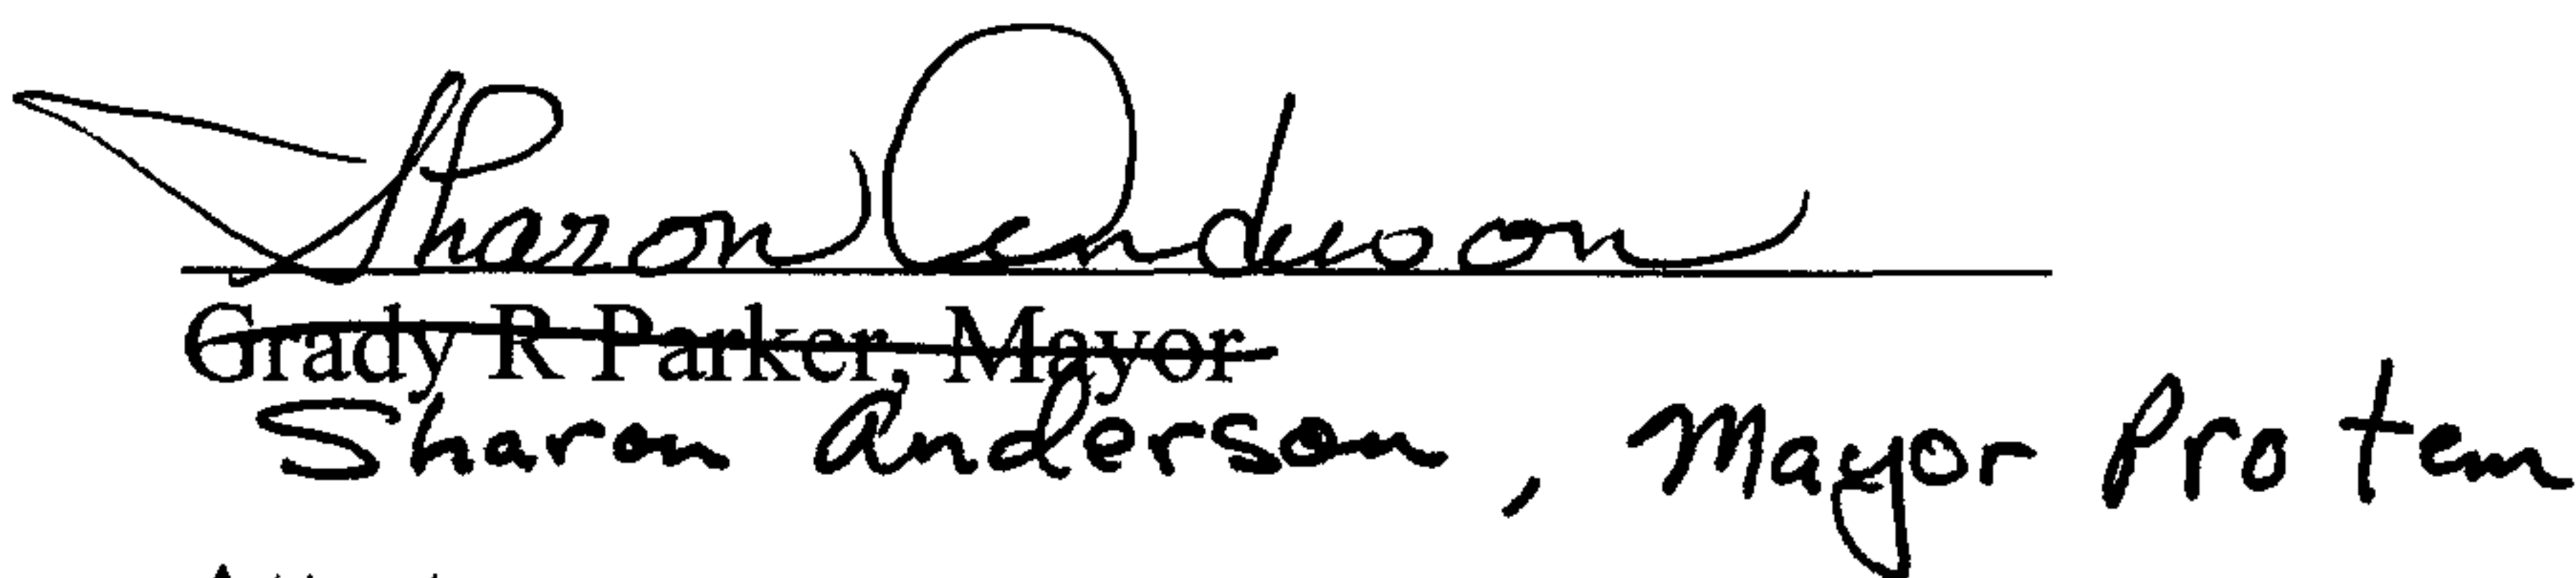 Sharon Anderson
Grady R Parker, Mayor
Sharon Anderson, Mayor Pro tem